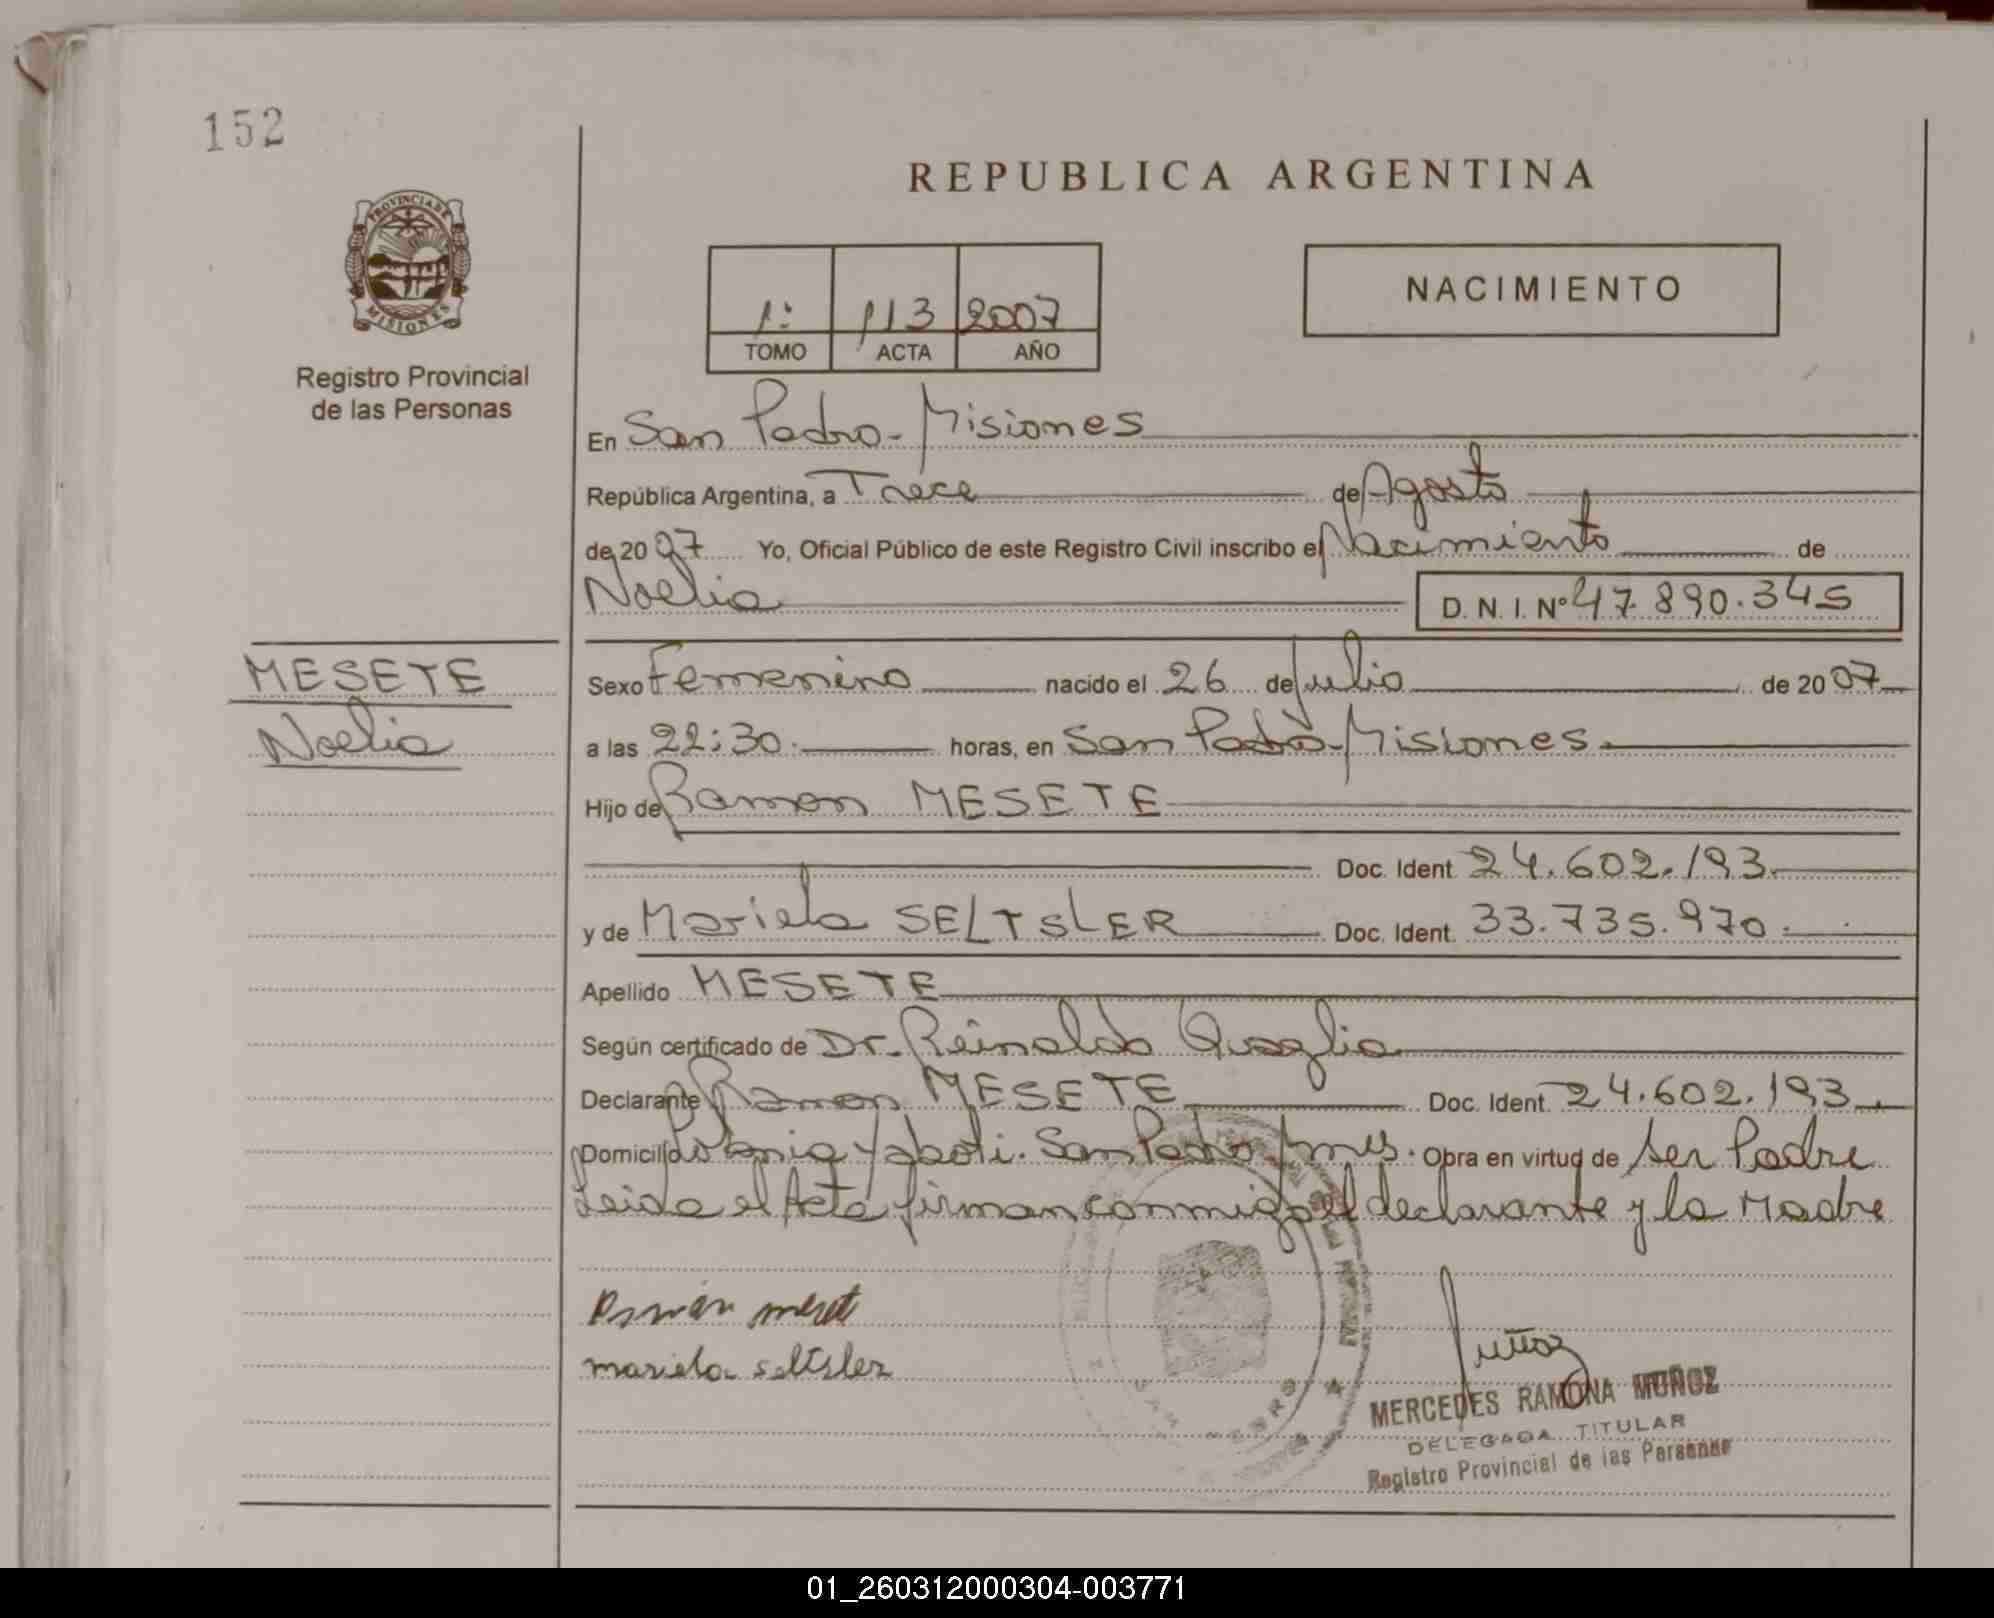 152
REPUBLICA ARGENTINA
PROVINCIA DE
MISIONES
Registro Provincial
de las Personas
1º 113 2007
TOMO ACTA AÑO
NACIMIENTO
En San Pedro - Misiones
República Argentina, a Trece de Agosto
de 2007 Yo, Oficial Público de este Registro Civil inscribo el Nacimiento de
Noelia D. N. I. Nº 47.890.345
MESETE
Noelia
Sexo Femenino nacido el 26 de Julio de 2007
a las 22:30. horas, en San Pedro - Misiones.
Hijo de Ramon MESETE
Doc. Ident. 24.602.193.
y de Mariela SELTSLER Doc. Ident. 33.735.970.
Apellido MESETE
Según certificado de Dr. Reinaldo Quaglia
Declarante Ramon MESETE Doc. Ident. 24.602.193.
Domicilio Colonia Yaboti. San Pedro Mnes. Obra en virtud de Ser Padre
Leida el Acta firman conmigo el declarante y la Madre
mariela seltsler
Muñoz
MERCEDES RAMONA MUÑOZ
DELEGADA TITULAR
Registro Provincial de las Personas
01_260312000304-003771